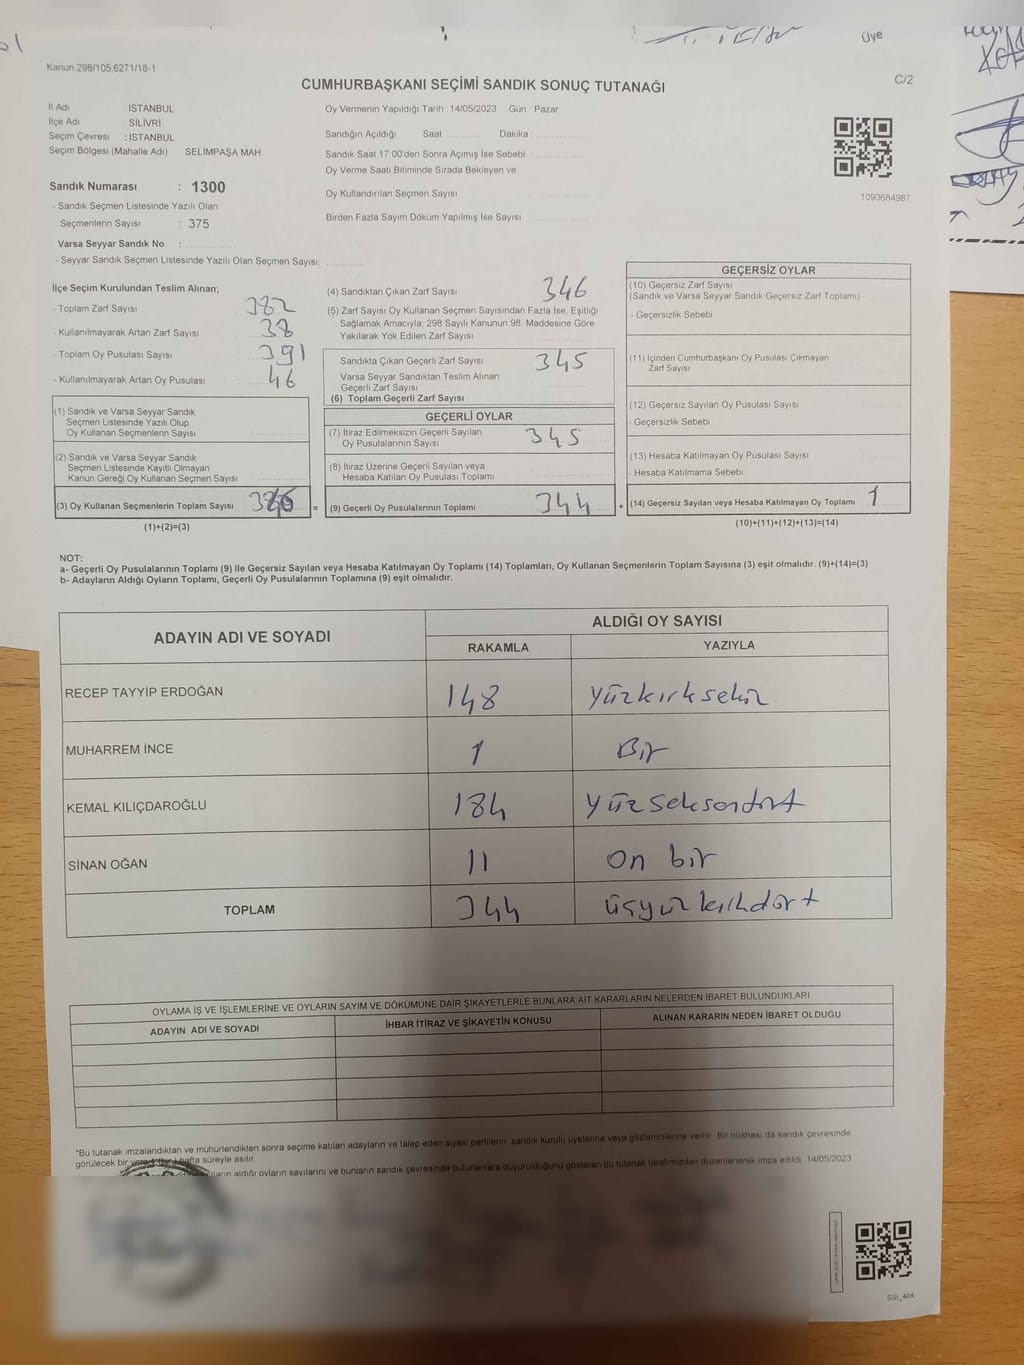 Üye
Kanun 298/105.6271/18-1
CUMHURBAŞKANI SEÇİMİ SANDIK SONUÇ TUTANAĞI
C/2
İl Adı : İSTANBUL
İlçe Adı : SİLİVRİ
Seçim Çevresi : İSTANBUL
Seçim Bölgesi (Mahalle Adı) SELİMPAŞA MAH.
Sandık Numarası : 1300
- Sandık Seçmen Listesinde Yazılı Olan
Seçmenlerin Sayısı : 375
Varsa Seyyar Sandık No :
- Seyyar Sandık Seçmen Listesinde Yazılı Olan Seçmen Sayısı:
Oy Vermenin Yapıldığı Tarih : 14/05/2023 Gün : Pazar
Sandığın Açıldığı Saat Dakika :
Sandık Saat 17:00'den Sonra Açımış İse Sebebi :
Oy Verme Saati Bitiminde Sırada Bekleyen ve
Oy Kullandırılan Seçmen Sayısı
Birden Fazla Sayım Döküm Yapılmış İse Sayısı
1093684987
İlçe Seçim Kurulundan Teslim Alınan;
- Toplam Zarf Sayısı 382
- Kullanılmayarak Artan Zarf Sayısı 38
- Toplam Oy Pusulası Sayısı 391
- Kullanılmayarak Artan Oy Pusulası 46
(1) Sandık ve Varsa Seyyar Sandık
Seçmen Listesinde Yazılı Olup
Oy Kullanan Seçmenlerin Sayısı
(2) Sandık ve Varsa Seyyar Sandık
Seçmen Listesinde Kayıtlı Olmayan
Kanun Gereği Oy Kullanan Seçmen Sayısı
(3) Oy Kullanan Seçmenlerin Toplam Sayısı =
(1)+(2)=(3)
(4) Sandıktan Çıkan Zarf Sayısı 346
(5) Zarf Sayısı Oy Kullanan Seçmen Sayısından Fazla İse, Eşitliği
Sağlamak Amacıyla; 298 Sayılı Kanunun 98. Maddesine Göre
Yakılarak Yok Edilen Zarf Sayısı
Sandıkta Çıkan Geçerli Zarf Sayısı 345
Varsa Seyyar Sandıktan Teslim Alınan
Geçerli Zarf Sayısı
(6) Toplam Geçerli Zarf Sayısı
GEÇERLİ OYLAR
(7) İtiraz Edilmeksizin Geçerli Sayılan
Oy Pusulalarının Sayısı 345
(8) İtiraz Üzerine Geçerli Sayılan veya
Hesaba Katılan Oy Pusulası Toplamı
(9) Geçerli Oy Pusulalarının Toplamı 344 +
GEÇERSİZ OYLAR
(10) Geçersiz Zarf Sayısı
(Sandık ve Varsa Seyyar Sandık Geçersiz Zarf Toplamı)
- Geçersizlik Sebebi
(11) İçinden Cumhurbaşkanı Oy Pusulası Çıkmayan
Zarf Sayısı
(12) Geçersiz Sayılan Oy Pusulası Sayısı
- Geçersizlik Sebebi
(13) Hesaba Katılmayan Oy Pusulası Sayısı
- Hesaba Katılmama Sebebi
(14) Geçersiz Sayılan veya Hesaba Katılmayan Oy Toplamı 1
(10)+(11)+(12)+(13)=(14)
NOT:
a- Geçerli Oy Pusulalarının Toplamı (9) ile Geçersiz Sayılan veya Hesaba Katılmayan Oy Toplamı (14) Toplamları, Oy Kullanan Seçmenlerin Toplam Sayısına (3) eşit olmalıdır. (9)+(14)=(3)
b- Adayların Aldığı Oyların Toplamı, Geçerli Oy Pusulalarının Toplamına (9) eşit olmalıdır.
ADAYIN ADI VE SOYADI ALDIĞI OY SAYISI
RAKAMLA YAZIYLA
RECEP TAYYİP ERDOĞAN 148 yüzkırksekiz
MUHARREM İNCE 1 Bir
KEMAL KILIÇDAROĞLU 184 yüzseksendört
SİNAN OĞAN 11 on bir
TOPLAM 344 üçyüzkırkdört
OYLAMA İŞ VE İŞLEMLERİNE VE OYLARIN SAYIM VE DÖKÜMÜNE DAİR ŞİKAYETLERLE BUNLARA AİT KARARLARIN NELERDEN İBARET BULUNDUKLARI
ADAYIN ADI VE SOYADI İHBAR İTİRAZ VE ŞİKAYETİN KONUSU ALINAN KARARIN NEDEN İBARET OLDUĞU
*Bu tutanak imzalandıktan ve mühürlendikten sonra seçime katılan adayların ve talep eden siyasi partilerin sandık kurulu üyelerine veya gözlemcilerine verilir. Bir nüshası da sandık çevresinde
görülecek bir yere 1 hafta süreyle asılır.
aldığı oyların sayılarını ve bunların sandık çevresinde bulunanlara duyurulduğunu gösteren bu tutanak tarafımızdan düzenlenerek imza edildi. 14/05/2023
SSI_404